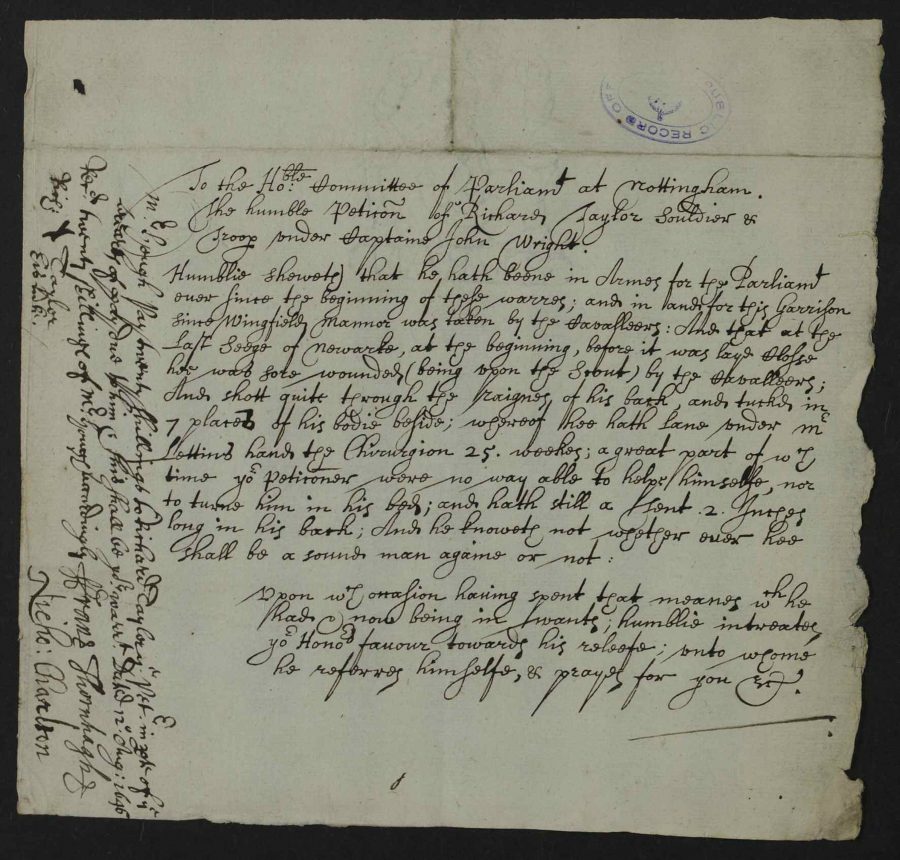 To the Ho:ble Committee of Parliamt at Nottingham.
The humble Peticōn of Richard Taylor Souldier &
Troop under Captaine John Wright.
Humblie sheweth that he hath beene in Armes for the Parliamt
ever since the beginning of these warres; and in and for this Garrison
since Wingfield Mannor was taken by the Cavalleers: And that at the
last Seege of Newarke, at the beginning, before it was layd Closse
hee was sore wounded (being upon the Scout) by the Cavalleers;
And shott quite through the Raignes of his back, and tuckd in
7 places of his bodie beside; whereof hee hath lane under mr
hands the Chirurgion 25. weekes; a great part of wch
time yor Peticoner were no way able to helpe himselfe, nor
to turne him in his bed; and hath still a Tent .2. Inches
long in his back; And he knoweth not whether ever hee
shall be a sound man againe or not:
Upon wch occasion having spent that meanes wch he
had & now being in wants; humblie intreates
yor Honors favour towards his releefe; unto whome
he referres himselfe, & prayes for you &c.
Mr Gough pay twenty shillings to Richard Taylor ye Pet. in pte of ye
due to him & this shall be yor warrt. Dated 12o Aug: 1646
Frans Thornhagh
Nicho: Charlton
Recd twenty shillings of Mr Gough accordingly
Rich: Taylor
PUBLIC RECORD OF